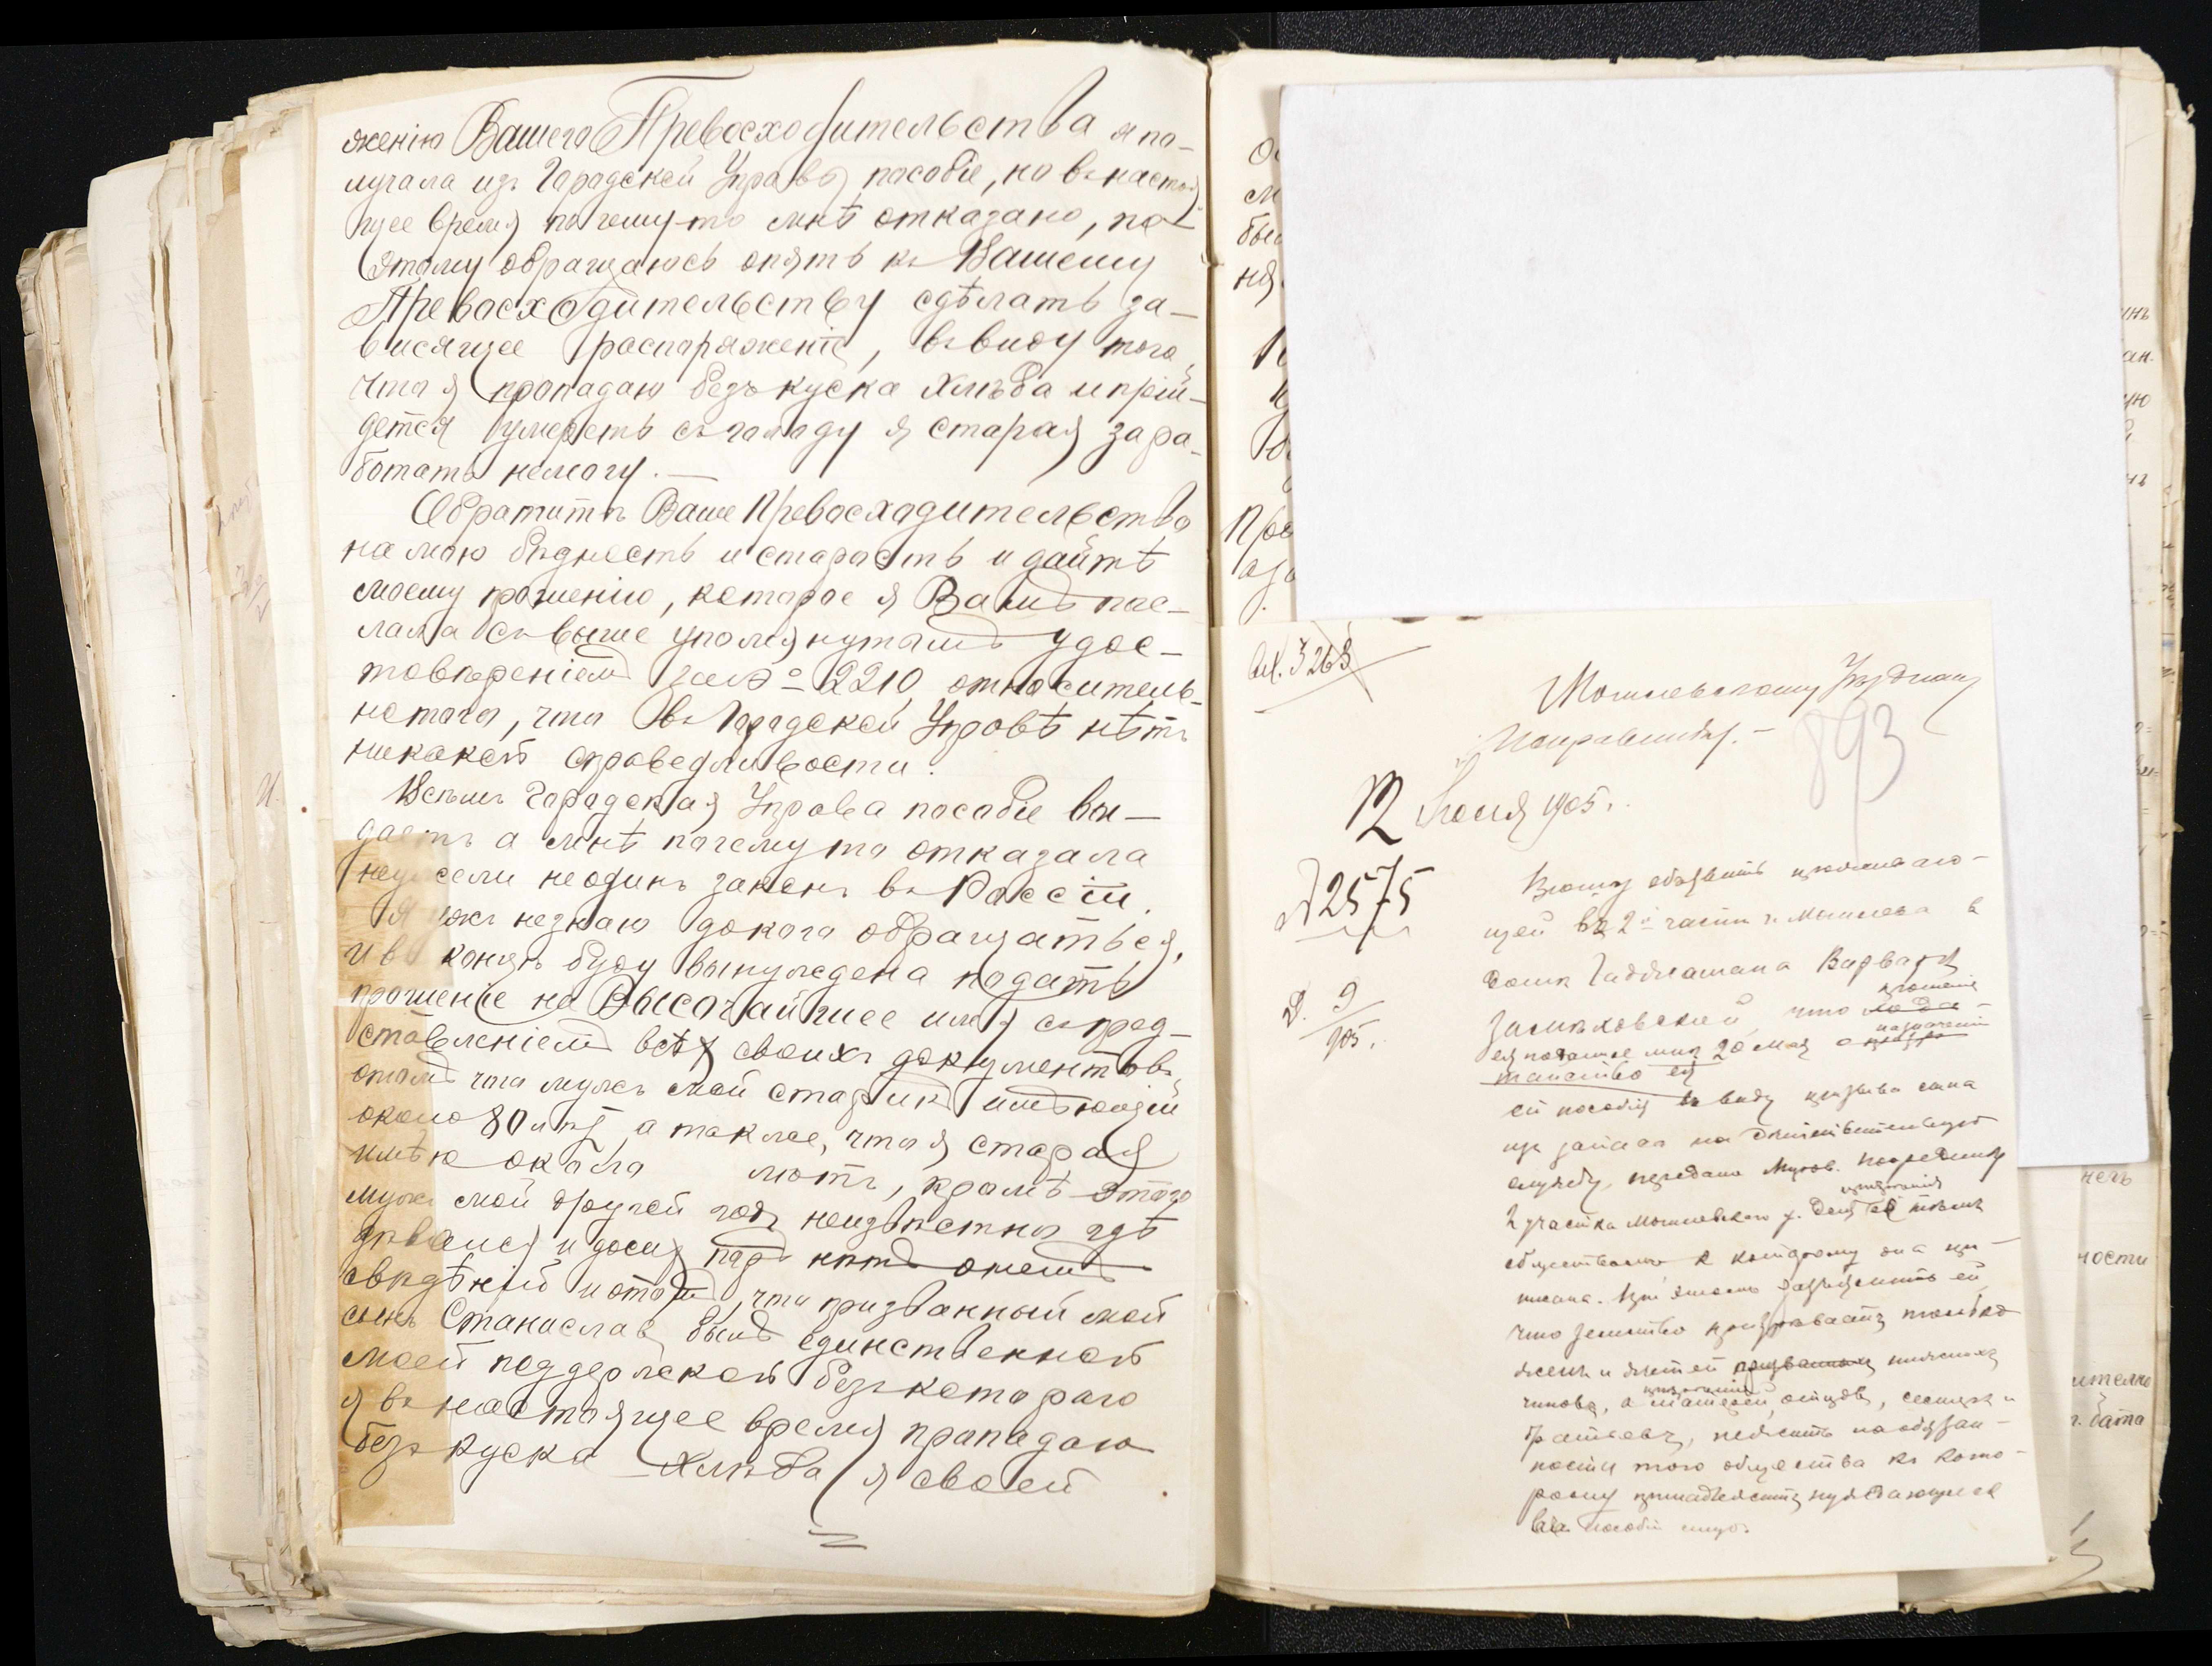 женію Вашего Превосходительства я по-
лучала изъ Городской Управы пособіе, но въ настоя
щее время почему-то мнѣ отказано, по-
этому обращаюсь опять къ Вашему
Превосходительству сдѣлать за-
висящее распоряженіе, въ виду того,
что я пропадаю безъ куска хлѣба и прій-
дется умерѣть съ голоду я старая зара-
ботать немогу. —
Обратитъ Ваше Превосходительство
на мою бѣдность и старость и дайтѣ
моему прошенію, которое я Вамъ пос-
лала съ выше упомянутымъ удос-
товѣреніемъ за № 2210 относитель-
но того, что въ Городской Управѣ нѣтъ
никакой справедливости.
Всѣмъ Городская Управа пособіе вы-
даетъ а мнѣ почему то отказала
неужели не одинъ законъ въ Россіи.
Я ужъ незнаю докого обращаться,
и въ конецъ буду вынуждена подать
прошеніе на Высочайшее имя съ пред-
ставленіемъ всѣхъ своихъ документовъ
отомъ что мужъ мой старикъ имѣющій
около 80 лѣтъ, а также, что я старая
имѣю около лѣтъ, кромѣ этого
мужъ мой другой годъ неизвѣстно гдѣ
дѣвался и досихъ поръ нѣтъ онемъ
свѣдѣній и отомъ, что призванный мой
сынъ Станиславъ былъ единственной
моей поддержкой безъ котораго
я въ настоящее время пропадаю
безъ куска хлѣба я своей
Вх. 3268
Могилевскому Уѣздному
Исправнику. —
893
12 Іюня 1905 г.
№ 2575
Д. 9/905.
Прошу объявить проживаю-
щей во 2й части г. Могилева в
домѣ Варварѣ
что прошеніе
ея поданное мнѣ 20 Мая о назначеніи
ей пособія въ виду призыва сына
изъ запаса на дѣйствительную
службу, передано Миров. Посреднику
2 участка Могилевскаго у. для призрѣнія ея тѣмъ
обществомъ къ которому она при-
писана. При этомъ разъяснить ей
что земство призрѣваетъ только
женъ и дѣтей призванныхъ нижнихъ
чиновъ, а призрѣніе матерей, отцовъ, сестеръ и
братьевъ, лежитъ на обязан-
ности того общества къ кото-
рому принадлежитъ нуждающееся
въ пособіи лицо.